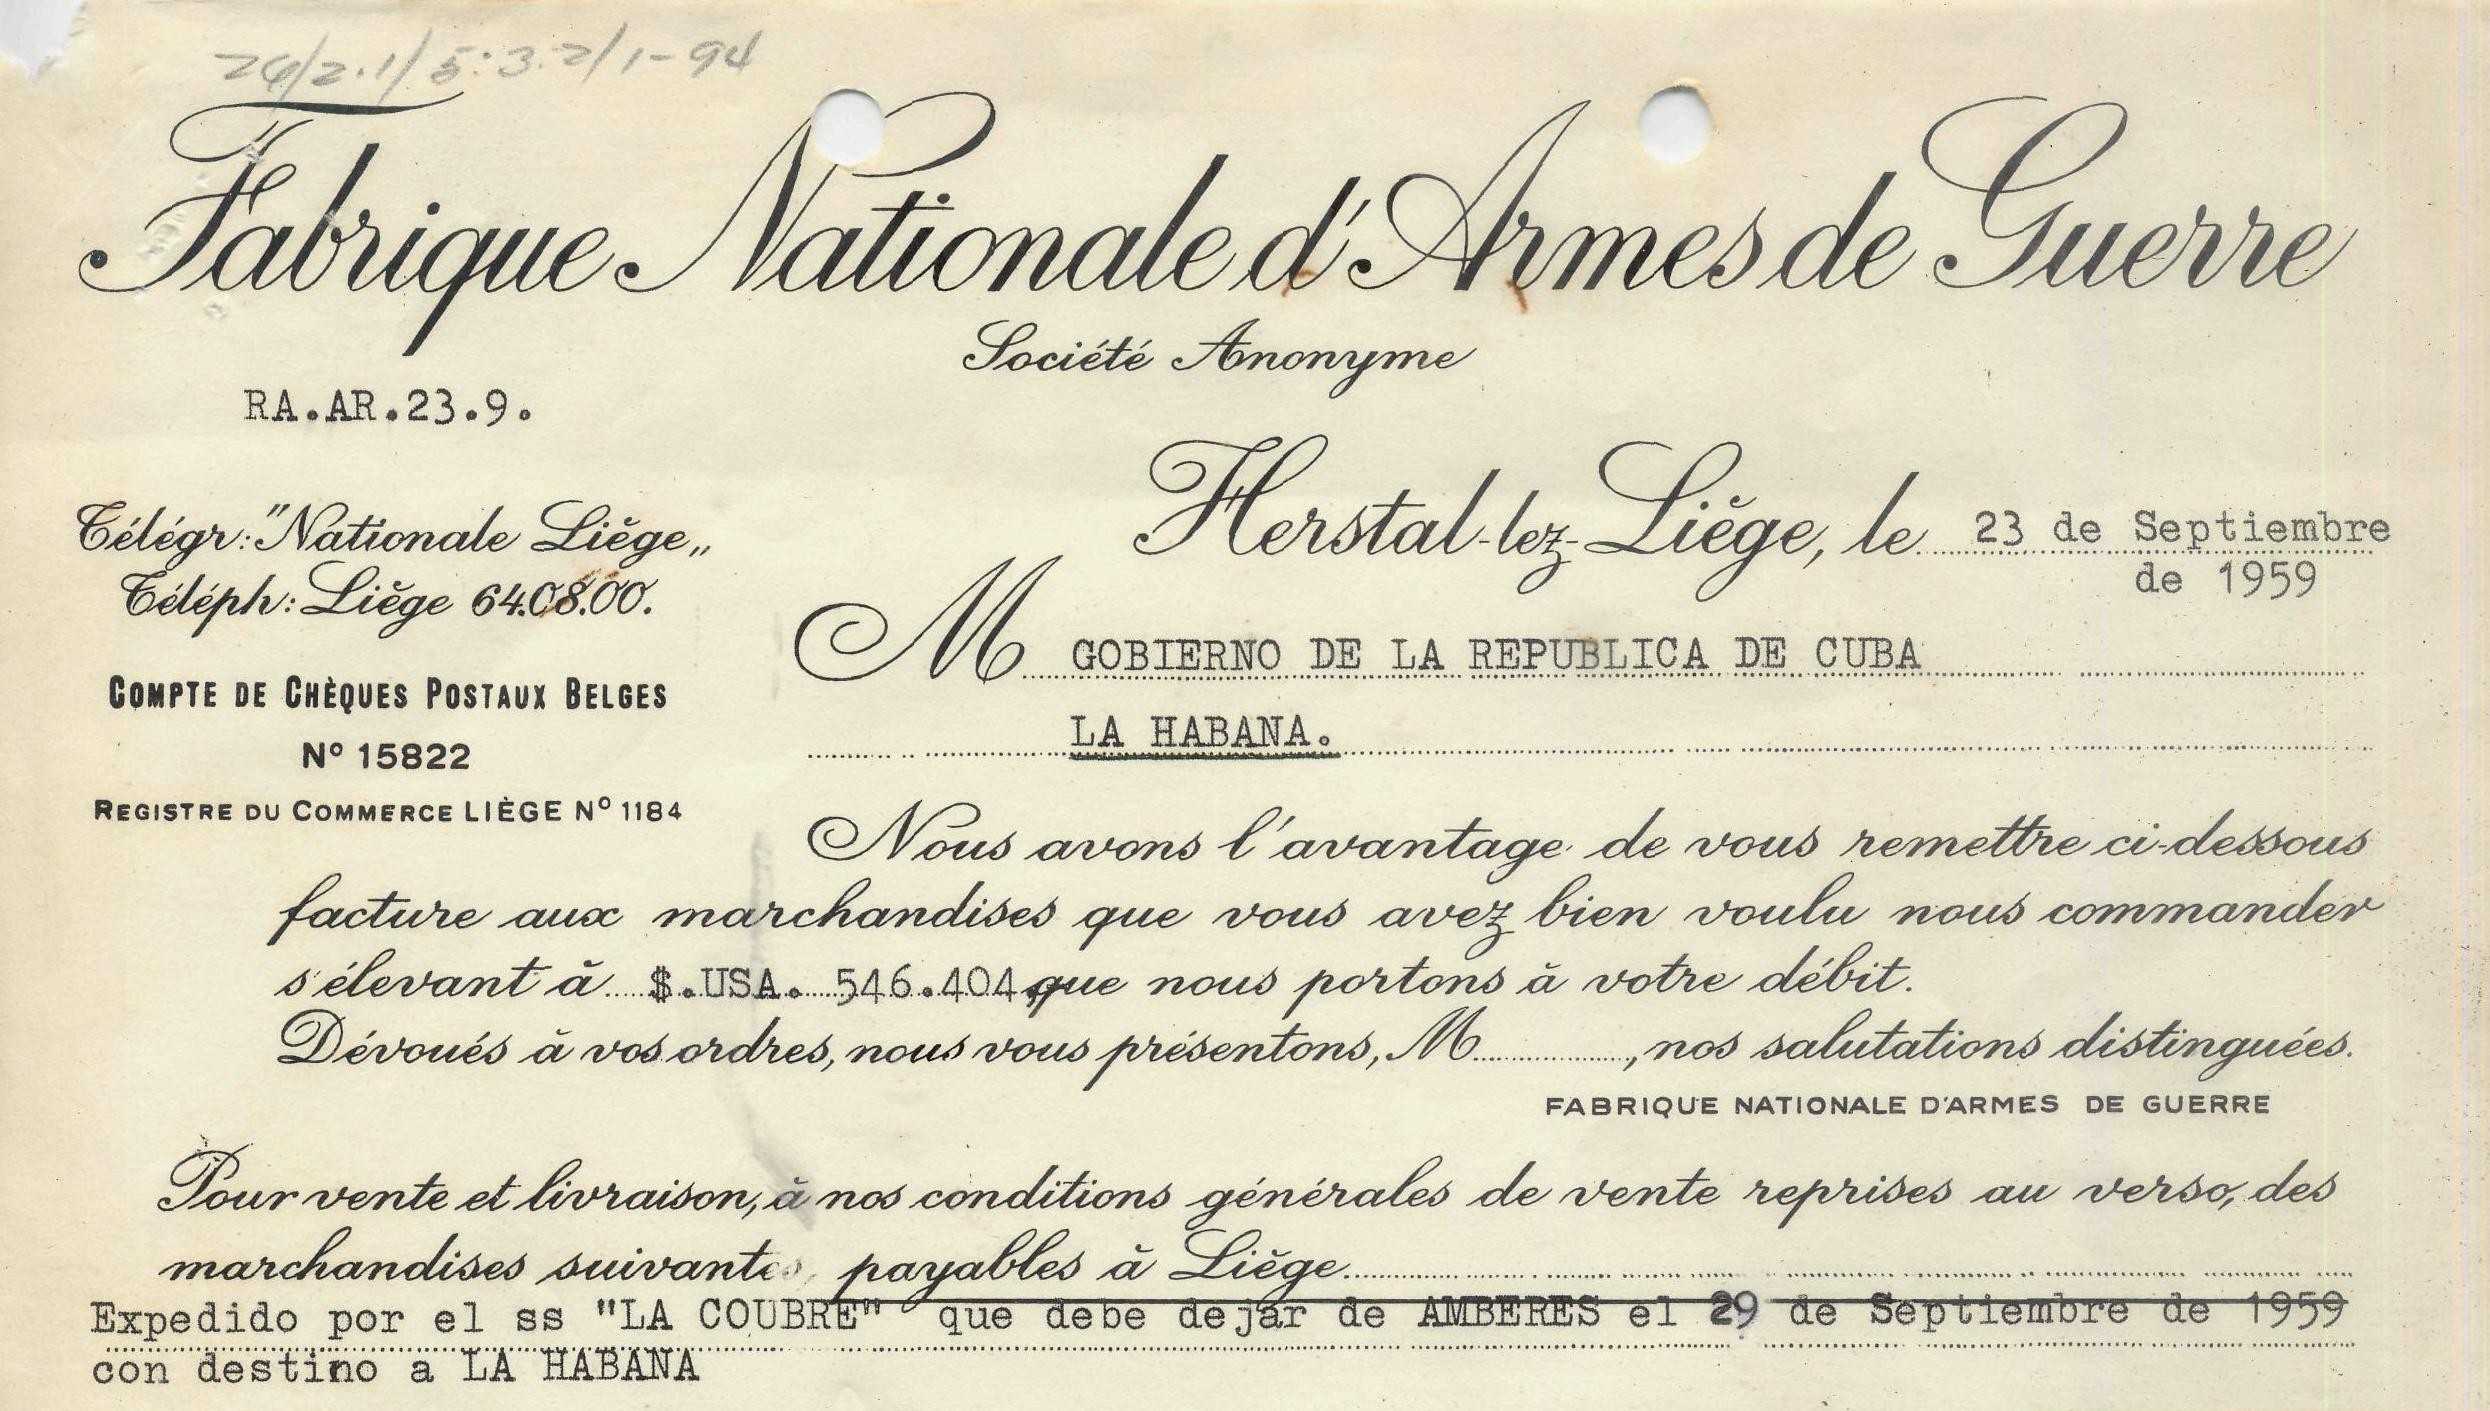 26/2.1/5:3.2/1-94
Fabrique Nationale d'Armes de Guerre
Société Anonyme
RA.AR.23.9.
Herstal-lez-Liège, le 23 de Septiembre
de 1959
Télégr: "Nationale Liège„
Téléph: Liège 64.08.00.
COMPTE DE CHÈQUES POSTAUX BELGES
Nº 15822
REGISTRE DU COMMERCE LIÈGE Nº 1184
M GOBIERNO DE LA REPUBLICA DE CUBA
LA HABANA.
Nous avons l'avantage de vous remettre ci-dessous
facture aux marchandises que vous avez bien voulu nous commander
s'élevant à $.USA. 546.404,- que nous portons à votre débit.
Dévoués à vos ordres, nous vous présentons, M............, nos salutations distinguées.
FABRIQUE NATIONALE D'ARMES DE GUERRE
Pour vente et livraison, à nos conditions générales de vente reprises au verso, des
marchandises suivantes, payables à Liège
Expedido por el ss "LA COUBRE" que debe dejar de AMBERES el 29 de Septiembre de 1959
con destino a LA HABANA